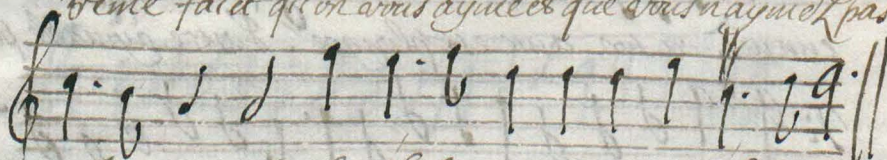 faict qu'on vous ayme et que vous n'aymez pas